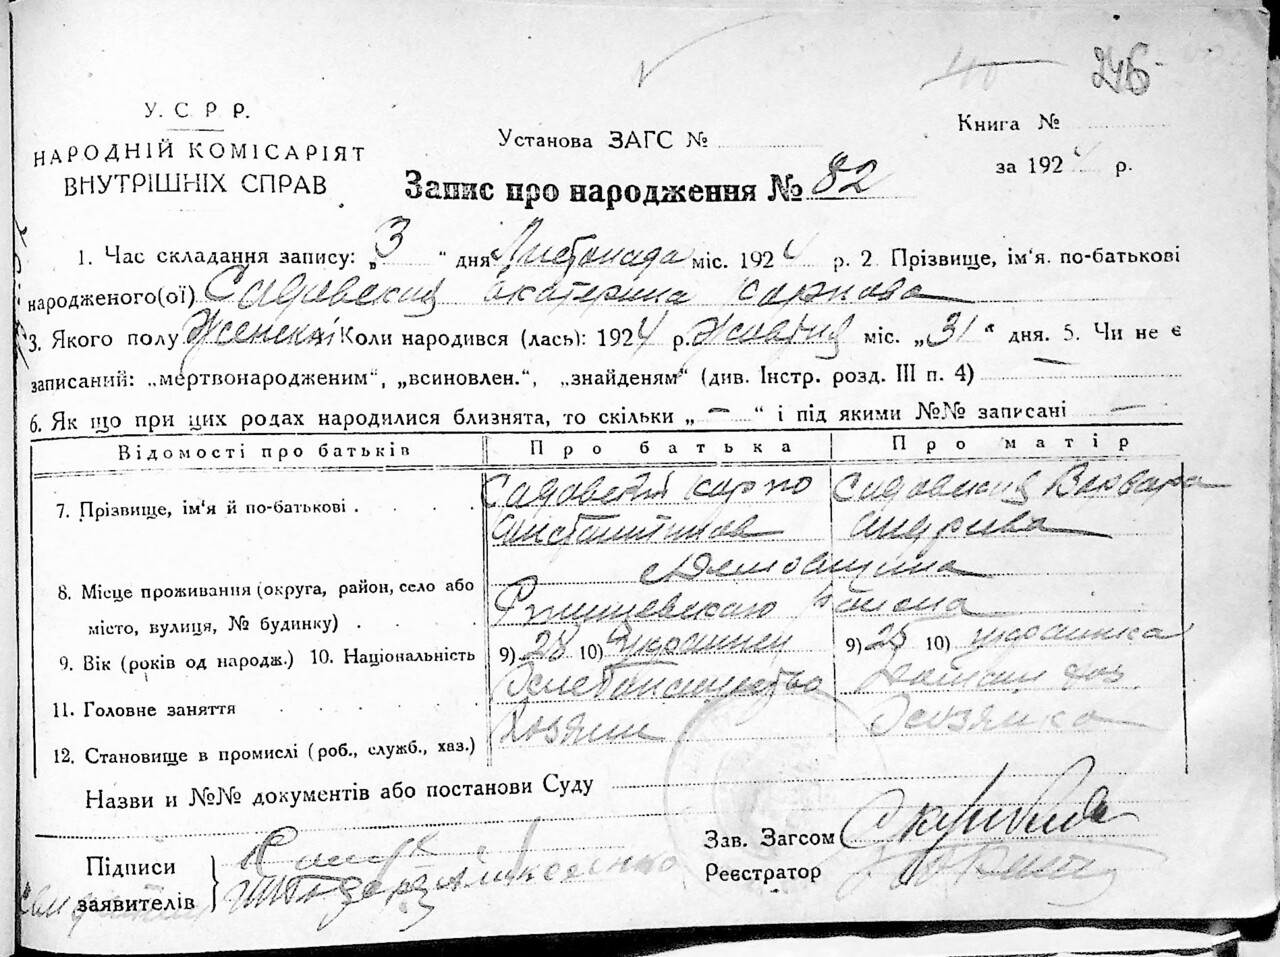 246
У. С. Р Р.
НАРОДНІЙ КОМІСАРІЯТ
ВНУТРІШНІХ СПРАВ
Установа ЗАГС №
Книга №
за 1924 р.
Запис про народження № 82
1. Час складання запису: „3“ дня Листопада міс. 1924 р. 2. Прізвище, ім'я, по-батькові
народженого(ої) Садовская Екатерина Карпова
3. Якого полу Женский Коли народився (лась): 1924 р. Жовтня міс. „31“ дня. 5. Чи не є
записаний: „мертвонародженим“, „всиновлен.“, „знайденям“ (див. Інстр. розд. III п. 4) —
6. Як що при цих родах народилися близнята, то скільки „—“ і під якими №№ записані —
Відомості про батьків Про батька Про матір
7. Прізвище, ім'я й по-батькові Садовский Карпо Садовская Варвара
Андріева
8. Місце проживання (округа, район, село або
місто, вулиця, № будинку) Ртищевскаго Района
9. Вік (років од народж.) 10. Національність 9) 28 10) Украинец 9) 25 10) Украинка
11. Головне заняття Хлебопашество
12. Становище в промислі (роб., служб., хаз.) Хозяин Хозяйка
Назви и №№ документів або постанови Суду
Зав. Загсом
Підписи
заявителів
Реєстратор